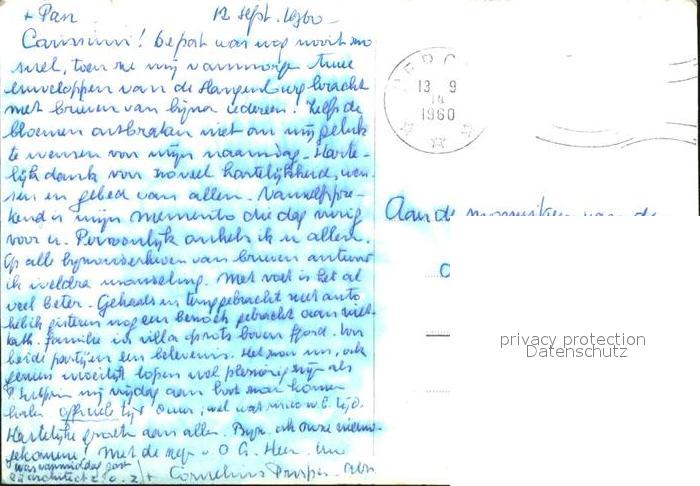 + Pax 12 sept. 1960
Carissimi! De post was nog nooit zo
snel, toen ze mij vanmorgen twee
enveloppen van de Slangenburg bracht
met brieven van bijna iedereen! Zelfs de
bloemen ontbraken niet om mij geluk
te wensen voor mijn naamdag. Harte-
lijk dank voor zoveel hartelijkheid, wen-
sen en gebed van allen. Vanzelfspre-
kend is mijn memento die dag vurig
voor u. Persoonlijk omhels ik u allen.
Op alle bijzonderheden van brieven antwoord
ik weldra mondeling. Met voet is het al
veel beter. Gehaald en teruggebracht met auto
heb ik gisteren nog een bezoek gebracht aan
kath. familie in villa boven fjord. Voor
beide partijen een belevenis. Het zou nu, ook
lopen wel plezierig zijn als
mij vrijdag aan boot zou komen
halen officiele tijd 0 uur; wel wat
Hartelijke groeten aan allen. Bijz. ook onze nieuw-
gekomene! Met de zegen v. O. L. Heer. Uw
was vanmiddag gast + Cornelius
bij architect z.o.z.
13 9
14
1960
Aan de monniken van de
privacy protection
Datenschutz